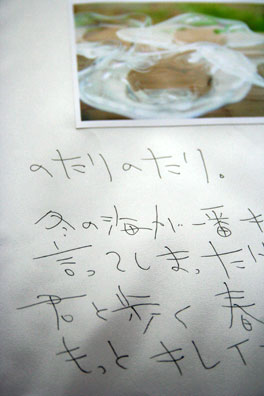 のたりのたり。
冬の海が一番キ
言ってしまったけ
君と歩く春
もっとキレイ